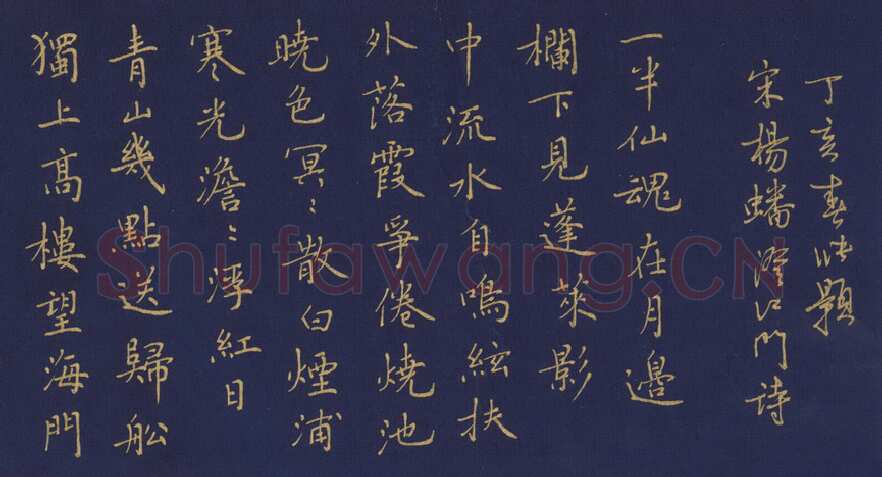 獨上髙樓望海門
青山幾點送歸舩
寒光澹〻浮紅日
曉色冥〻散白煙浦
外落霞爭倦燒池
中流水自鳴絃扶
欄下見蓬萊影
一半仙魂在月邊
宋楊蟠澄江門詩
丁亥春題
Shufawang.CN